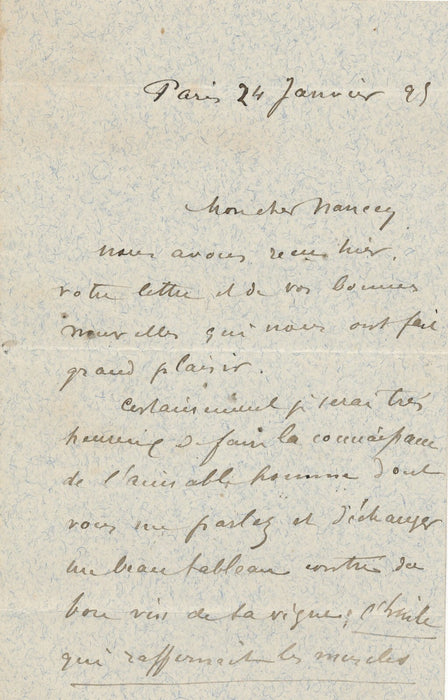 Paris 24 Janvier 95
Mon cher Nancey
nous avons recu hier
votre lettre et de vos bonnes
nouvelles qui nous ont fait
grand plaisir.
Certainement je serai très
heureux de faire la connaissance
de l'aimable homme dont
vous me parlez et d'échanger
un beau tableau contre du
bon vin de sa vigne, l'huile
qui raffermit les muscles